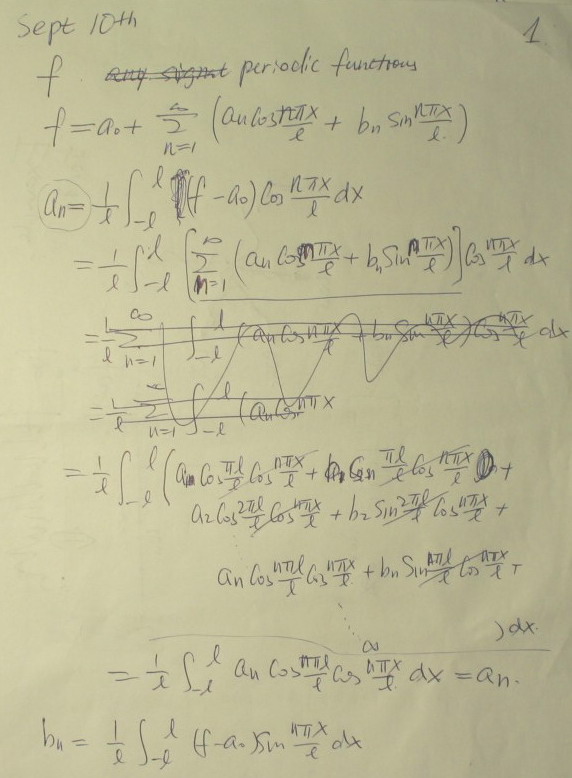 Sept 10th
1
f any signal periodic functions
f = a₀ + ∞ Σ n=1 (an Cos nπx/l + bn Sin nπx/l)
an = 1/l ∫ -l l (f - a₀) Cos nπx/l dx
= 1/l ∫ -l l [∞ Σ n=1 (an Cos nπx/l + bn Sin nπx/l)] Cos nπx/l dx
= 1/l ∞ Σ n=1 ∫ -l l (an Cos nπx/l + bn Sin nπx/l) Cos nπx/l dx
= 1/l ∞ Σ n=1 ∫ -l l (an Cos nπx
= 1/l ∫ -l l (a Cos πl/l Cos nπx/l + Sin πl/l Cos nπx/l +
a₂ Cos 2πl/l Cos nπx/l + b₂ Sin 2πl/l Cos nπx/l +
an Cos nπl/l Cos nπx/l + bn Sin nπl/l Cos nπx/l +
) dx.
= 1/l ∫ -l l an Cos nπl/l Cos nπx/l dx = an.
bn = 1/l ∫ -l l (f - a₀) Sin nπx/l dx